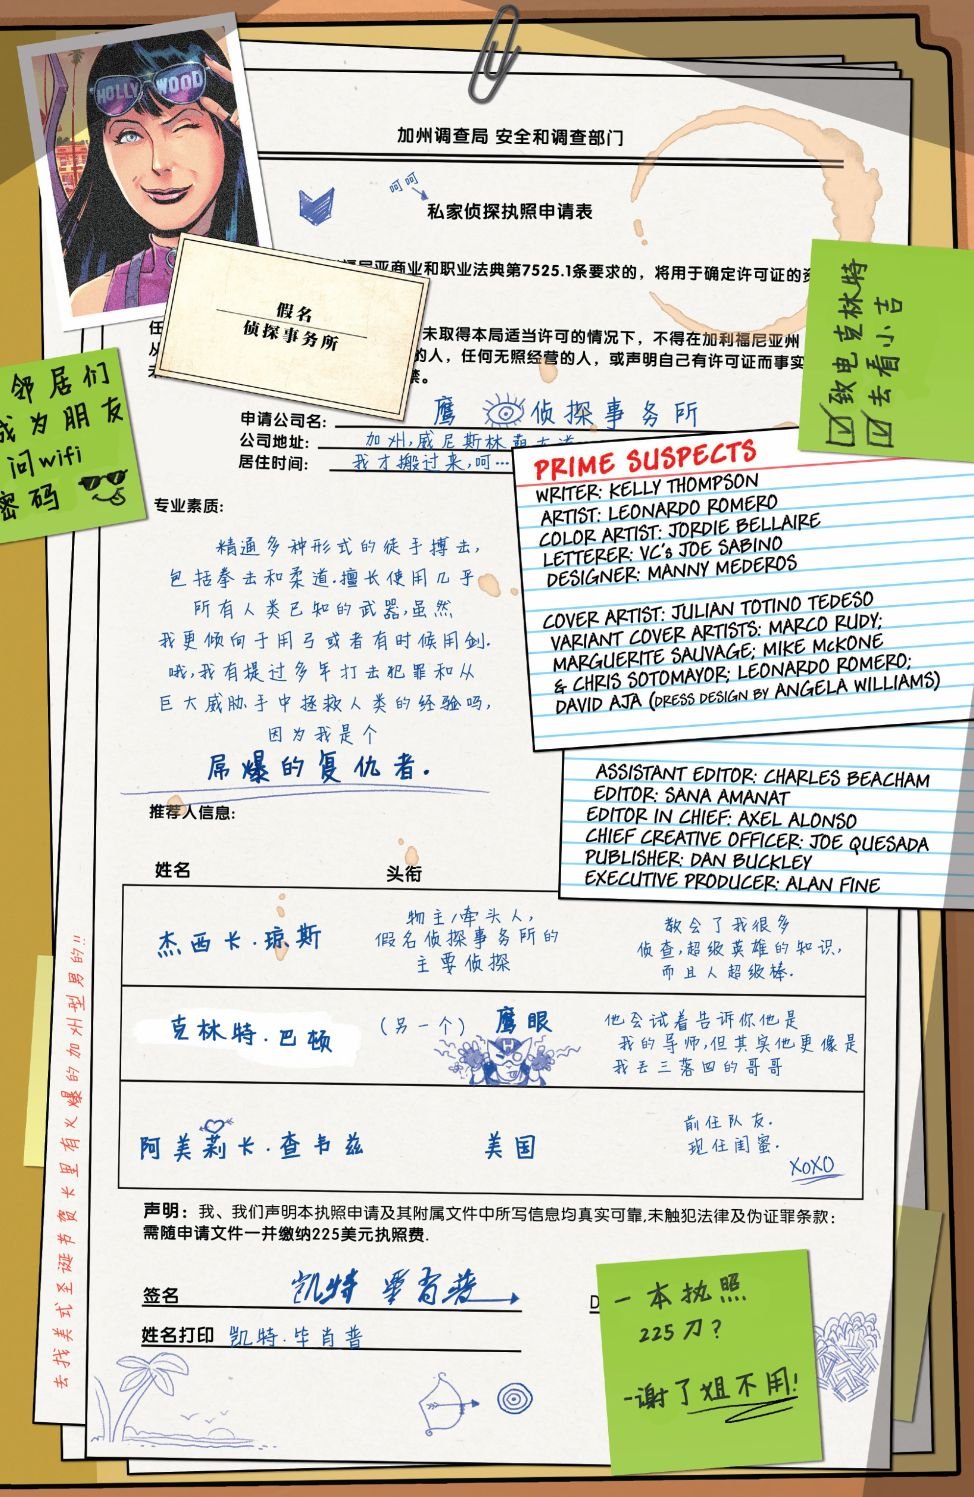 HOLLY WOOD
加州调查局 安全和调查部门
呵呵
私家侦探执照申请表
福尼亚商业和职业法典第7525.1条要求的，将用于确定许可证的资
假名
侦探事务所
任
未取得本局适当许可的情况下，不得在加利福尼亚州
从
的人，任何无照经营的人，或声明自己有许可证而事实
禁。
致电克林特
去看小吉
邻居们
成为朋友
问wifi
密码
申请公司名：
鹰 侦探事务所
公司地址：
加州,威尼斯林荫大道
居住时间：
我才搬过来,呵…
PRIME SUSPECTS
WRITER: KELLY THOMPSON
ARTIST: LEONARDO ROMERO
COLOR ARTIST: JORDIE BELLAIRE
LETTERER: VC's JOE SABINO
DESIGNER: MANNY MEDEROS
COVER ARTIST: JULIAN TOTINO TEDESO
VARIANT COVER ARTISTS: MARCO RUDY;
MARGUERITE SAUVAGE; MIKE McKONE
& CHRIS SOTOMAYOR; LEONARDO ROMERO;
DAVID AJA (DRESS DESIGN BY ANGELA WILLIAMS)
ASSISTANT EDITOR: CHARLES BEACHAM
EDITOR: SANA AMANAT
EDITOR IN CHIEF: AXEL ALONSO
CHIEF CREATIVE OFFICER: JOE QUESADA
PUBLISHER: DAN BUCKLEY
EXECUTIVE PRODUCER: ALAN FINE
专业素质:
精通多种形式的徒手搏击,
包括拳击和柔道.擅长使用几乎
所有人类已知的武器,虽然
我更倾向于用弓或者有时候用剑.
哦,我有提过多年打击犯罪和从
巨大威胁手中拯救人类的经验吗,
因为我是个
屌爆的复仇者.
推荐人信息:
姓名
头衔
杰西卡·琼斯
物主/牵头人,
假名侦探事务所的
主要侦探
教会了我很多
侦查,超级英雄的知识,
而且人超级棒.
克林特·巴顿
(另一个) 鹰眼
他会试着告诉你他是
我的导师,但其实他更像是
我丢三落四的哥哥
阿美莉卡·查韦兹
美国
前任队友.
现任闺蜜.
XOXO
声明：我、我们声明本执照申请及其附属文件中所写信息均真实可靠,未触犯法律及伪证罪条款：
需随申请文件一并缴纳225美元执照费.
签名
凯特 毕肖普
姓名打印
凯特·毕肖普
D
一本执照
225刀?
-谢了姐不用!
去找美式圣诞节贺卡里有火爆的加州型男的!!